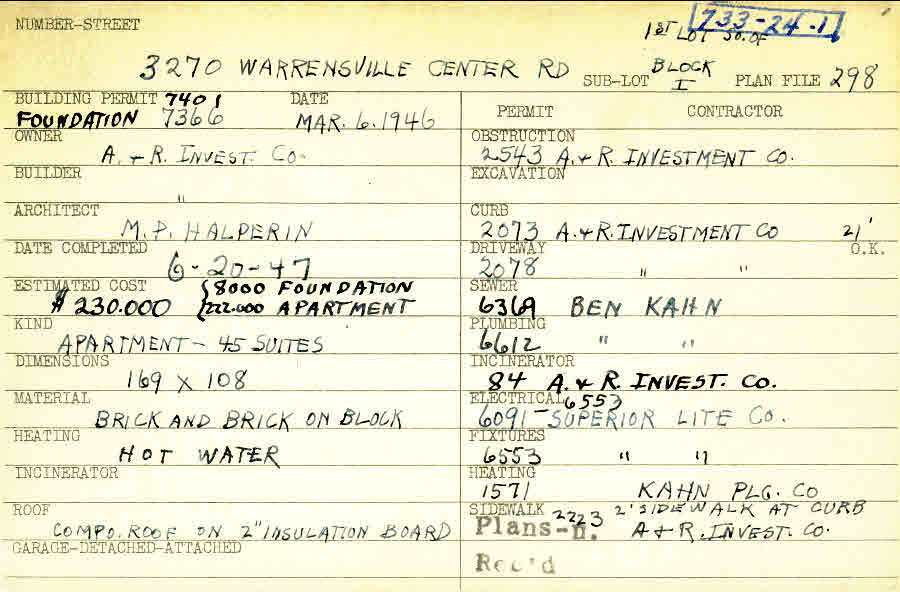 NUMBER-STREET
1ST LOT SO. OF
733-24-1
3270 WARRENSVILLE CENTER RD
SUB-LOT BLOCK I PLAN FILE 298
BUILDING PERMIT 7401 DATE
FOUNDATION 7366 MAR. 6. 1946
OWNER
A. + R. INVEST. CO.
BUILDER
"
ARCHITECT
M. P. HALPERIN
DATE COMPLETED
6-20-47
ESTIMATED COST { 8000 FOUNDATION
$ 230.000 { 222.000 APARTMENT
KIND
APARTMENT - 45 SUITES
DIMENSIONS
169 X 108
MATERIAL
BRICK AND BRICK ON BLOCK
HEATING
HOT WATER
INCINERATOR
ROOF
COMPO. ROOF ON 2" INSULATION BOARD
GARAGE-DETACHED-ATTACHED
PERMIT CONTRACTOR
OBSTRUCTION
2543 A. + R. INVESTMENT CO.
EXCAVATION
CURB
2073 A. + R. INVESTMENT CO 21'
DRIVEWAY O.K.
2078 " "
SEWER
6369 BEN KAHN
PLUMBING
6612 " "
INCINERATOR
84 A. + R. INVEST. CO.
ELECTRICAL 6553
6091 - SUPERIOR LITE CO.
FIXTURES
6553 " "
HEATING
1571 KAHN PLG. CO
SIDEWALK 2223 2' SIDEWALK AT CURB
Plans-D. A + R. INVEST. CO.
Rec'd